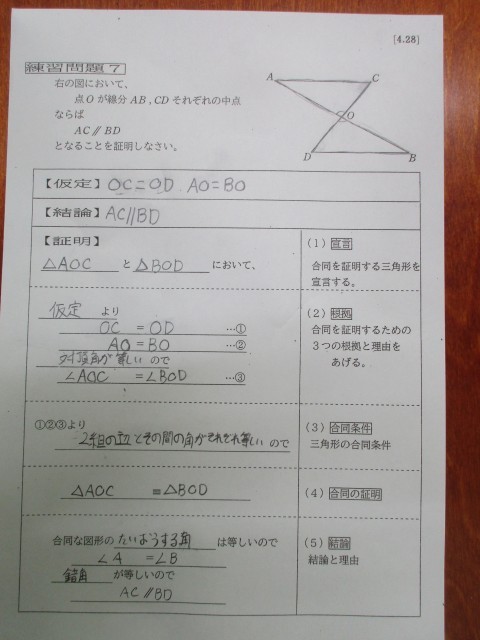 [4.28]
練習問題7
右の図において、
点Oが線分AB,CDそれぞれの中点
ならば
AC∥BD
となることを証明しなさい。
A
C
O
D
B
【仮定】OC=OD AO=BO
【結論】AC//BD
【証明】
△AOC と △BOD において、
(1) 宣言
合同を証明する三角形を
宣言する。
仮定 より
OC = OD …①
AO = BO …②
対頂角が等しい ので
∠AOC = ∠BOD …③
(2) 根拠
合同を証明するための
3つの根拠と理由を
あげる。
①②③より
2組の辺とその間の角がそれぞれ等しい ので
(3) 合同条件
三角形の合同条件
△AOC ≡ △BOD
(4) 合同の証明
合同な図形の たいおうする角 は等しいので
∠A = ∠B
錯角 が等しいので
AC∥BD
(5) 結論
結論と理由